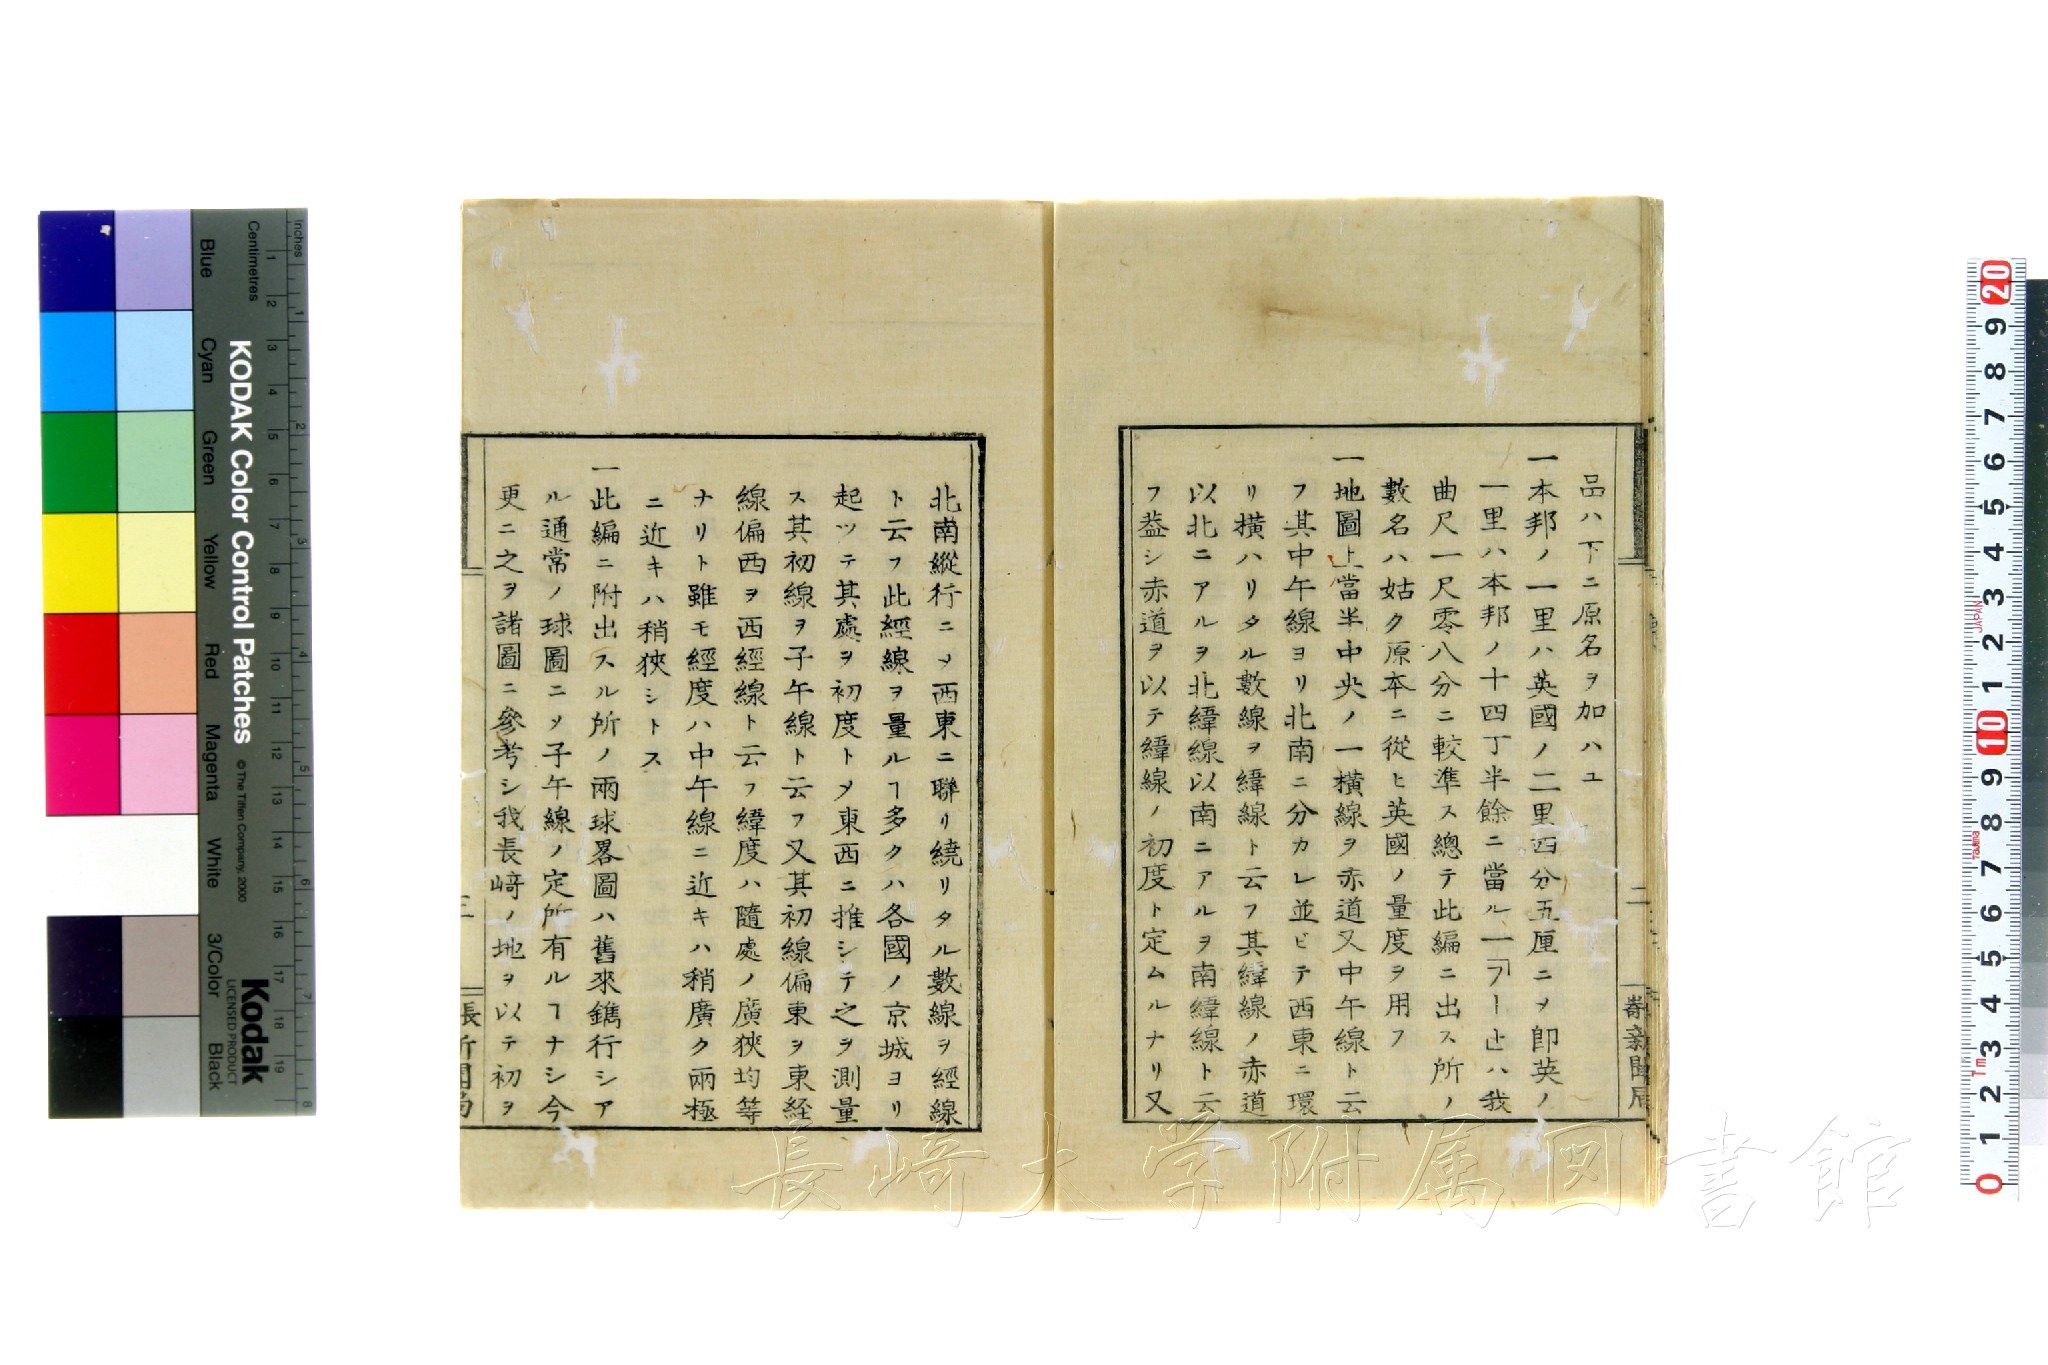 品ハ下ニ原名ヲ加ハユ
一本邦ノ一里ハ英國ノ二里四分五厘ニヲ即英ノ
一里ハ本邦ノ十四丁半餘ニ當ル一「フート」ハ我
曲尺一尺零八分ニ較準ス總テ此編ニ出ス所ノ
數名ハ姑ク原本ニ從ヒ英國ノ量度ヲ用フ
一地圖上當半中央ノ一橫線ヲ赤道又中午線ト云
フ其中午線ヨリ北南ニ分カレ並ビテ西東ニ環
リ橫ハリタル數線ヲ緯線ト云フ其緯線ノ赤道
以北ニアルヲ北緯線以南ニアルヲ南緯線ト云
フ蓋シ赤道ヲ以テ緯線ノ初度ト定ムルナリ又
二
崎新聞局
北南縱行ニ〆西東ニ聯リ繞リタル數線ヲ經線
ト云フ此經線ヲ量ルヿ多クハ各國ノ京城ヨリ
起ツテ其處ヲ初度ト〆東西ニ推シテ之ヲ測量
ス其初線ヲ子午線ト云フ又其初線偏東ヲ東経
線偏西ヲ西經線ト云フ緯度ハ隨處ノ廣狹均等
ナリト雖モ經度ハ中午線ニ近キハ稍廣ク兩極
ニ近キハ稍狹シトス
一此編ニ附出スル所ノ兩球畧圖ハ舊來鐫行シア
ル通常ノ球圖ニ〆子午線ノ定所有ルヿナシ今
更ニ之ヲ諸圖ニ參考シ我長﨑ノ地ヲ以テ初ヲ
三
長
KODAK Color Control Patches
© The Tiffen Company, 2000
Kodak
LICENSED PRODUCT
Inches
Centimetres
Blue
Cyan
Green
Yellow
Red
Magenta
White
3/Color
Black
1 2 3 4 5 6 7 8 9 10 11 12 13 14 15 16 17 18 19
1 2 3 4 5 6 7 8
20 9 8 7 6 5 4 3 2 1 10 9 8 7 6 5 4 3 2 1 0
JAPAN
TAJIMA
Tm
長崎大学附属図書館